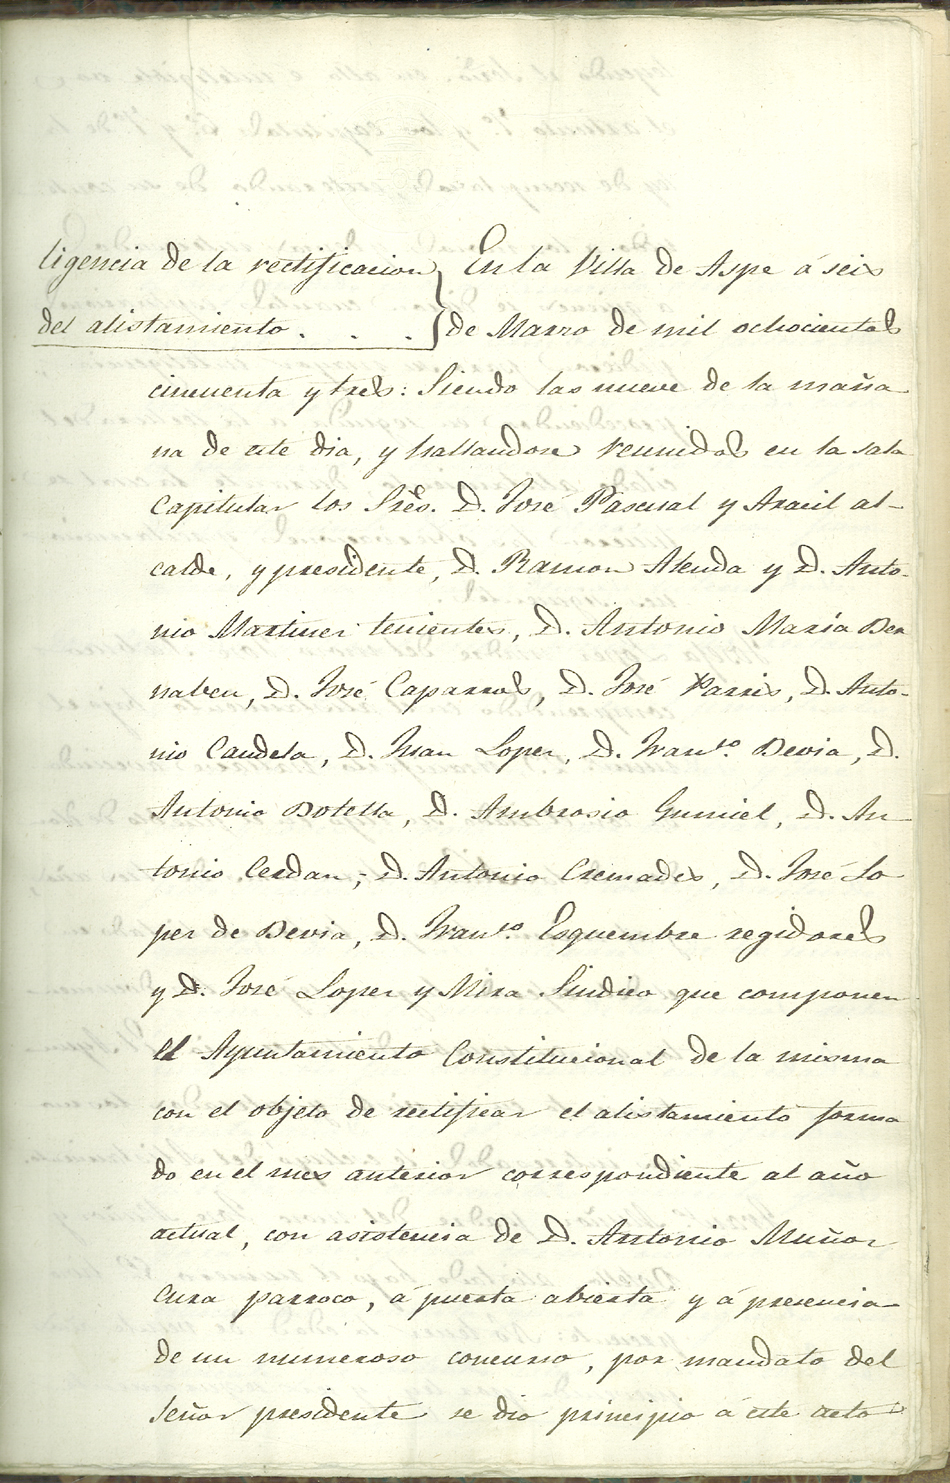 ligencia de la rectificacion
del alistamiento . . . .
En la Villa de Aspe á seis
de Marzo de mil ochocientos
cincuenta y tres: Siendo las nueve de la maña
na de este dia, y hallandose reunidos en la sala
Capitular los Sres. D. José Pascual y Aracil al-
calde, y presidente, D. Ramon Alenda y D. Anto-
nio Martinez tenientes, D. Antonio María Ber
nabeu, D. José Caparros, D. José Parres, D. Anto-
nio Candela, D. Juan Lopez, D. Franco. Devia, D.
Antonio Botella, D. Ambrosio Gumiel, D. An
tonio Cerdan, D. Antonio Cremades, D. José Lo
pez de Devia, D. Franco. Esquembre regidores
y D. José Lopez y Mira Sindico que componen
el Ayuntamiento Constitucional de la misma
con el objeto de rectificar el alistamiento forma
do en el mes anterior correspondiente al año
actual, con asistencia de D. Antonio Muñoz
Cura parroco, á puerta abierta y á presencia
de un numeroso concurso, por mandato del
Señor presidente se dio principio á este acto